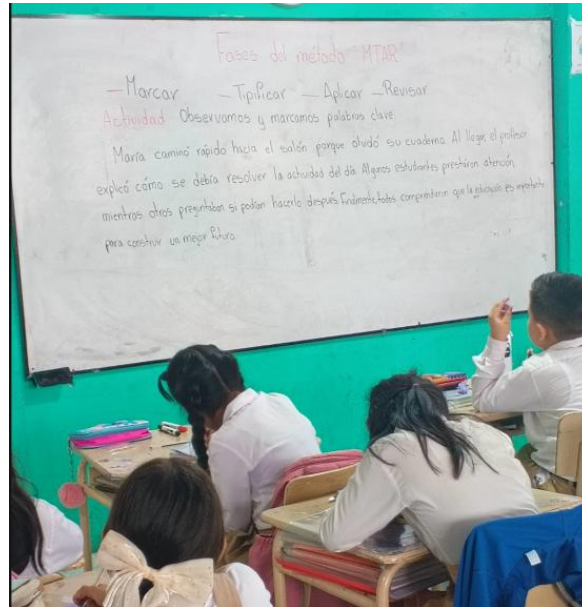 Fases del método "MTAR"
— Marcar — Tipificar — Aplicar — Revisar
Actividad Observamos y marcamos palabras clave.
María caminó rápido hacia el salón porque olvidó su cuaderno. Al llegar, el profesor
explicó cómo se debía resolver la actividad del día. Algunos estudiantes prestaron atención,
mientras otros preguntaban si podían hacerlo después. Finalmente, todos comprendieron que la educación es importante
para construir un mejor futuro.